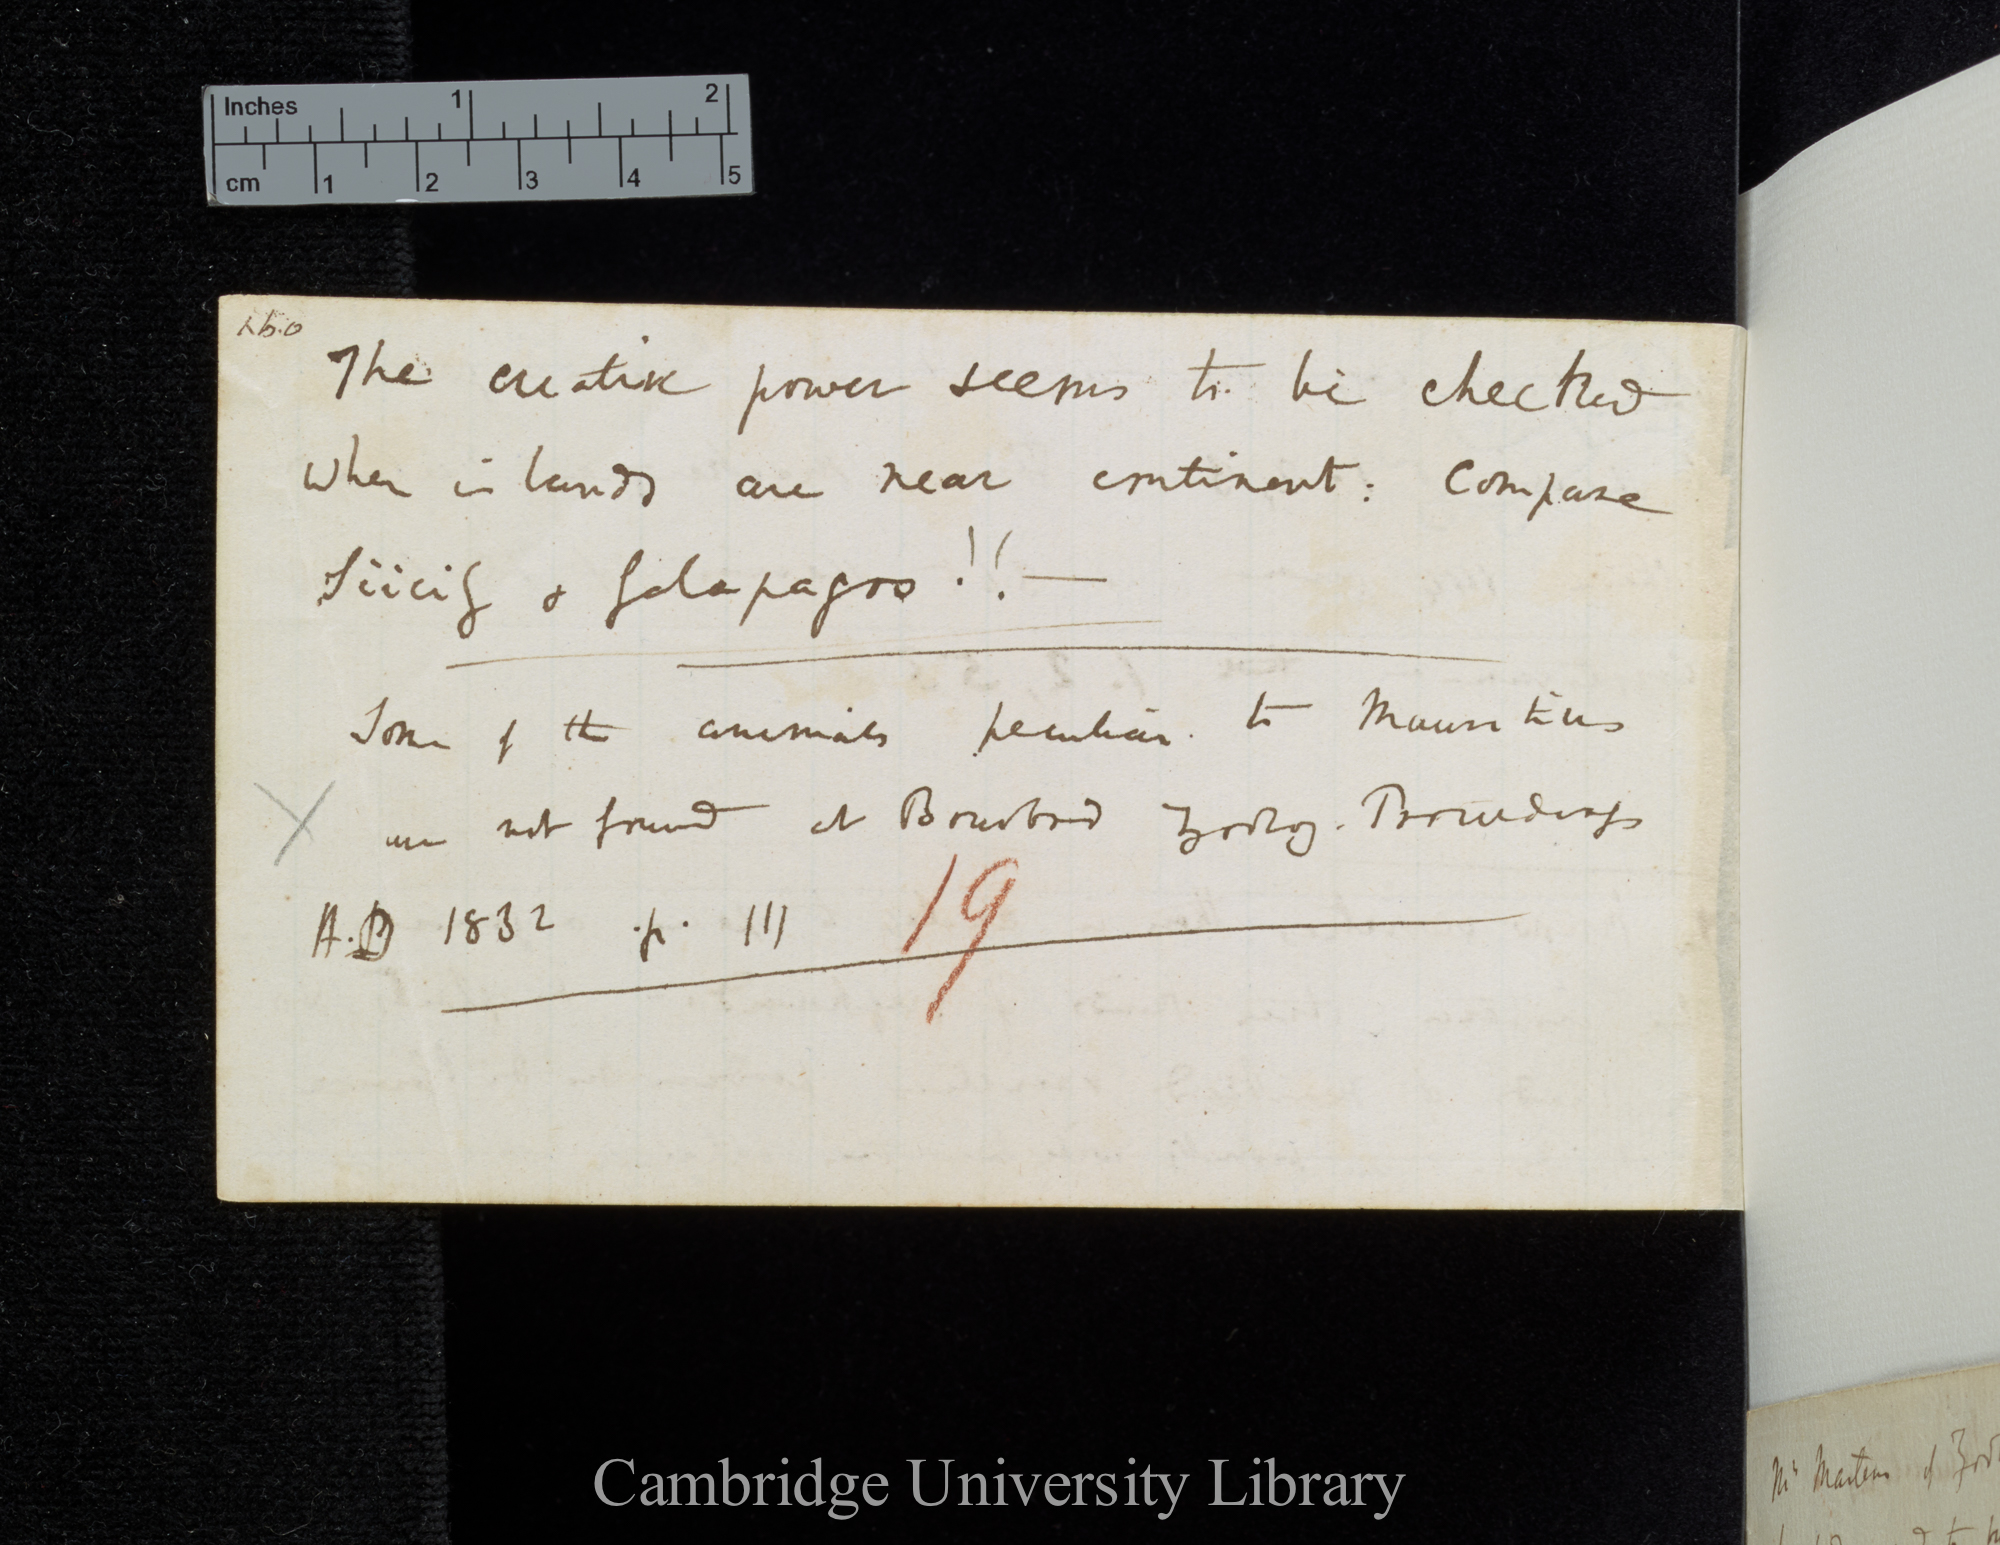 Inches 1 2
cm 1 2 3 4 5
The creative power seems to be checked
when islands are near continent: Compare
Sicily & Galapagos!! —
Some of the animals peculiar to Mauritius
are not found at Bourbon Zoolog. Proceedings
A.D 1832 p. 111
19
Cambridge University Library
Mr Martens of